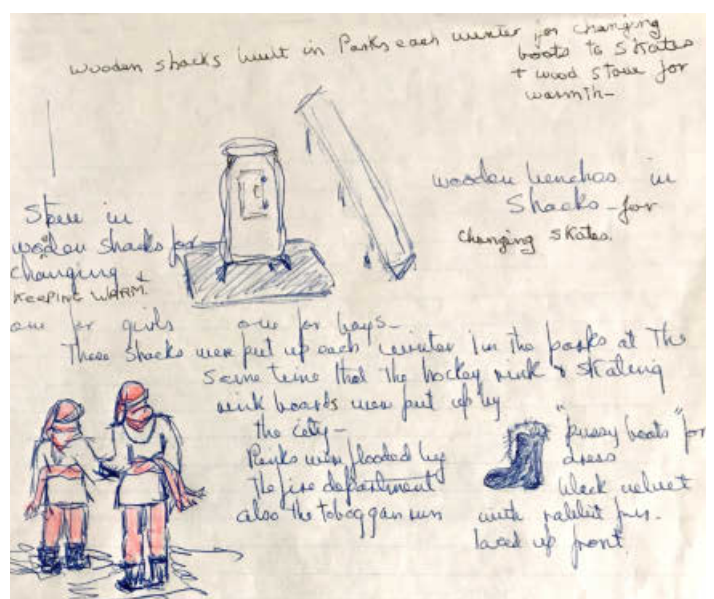 wooden shacks built in Parks each winter for changing
boots to skates
+ wood stove for
warmth-
wooden benches in
Shacks - for
changing skates.
Stove in
wooden shacks for
changing +
KEEPING WARM.
one for girls one for boys-
These shacks were put up each winter in the parks at The
same time that the hockey rink & skating
rink boards were put up by
the city-
Rinks were flooded by
The fire department
also the toboggan run
"pussy boots" for
dress
black velvet
with rabbit fur.
laced up front.